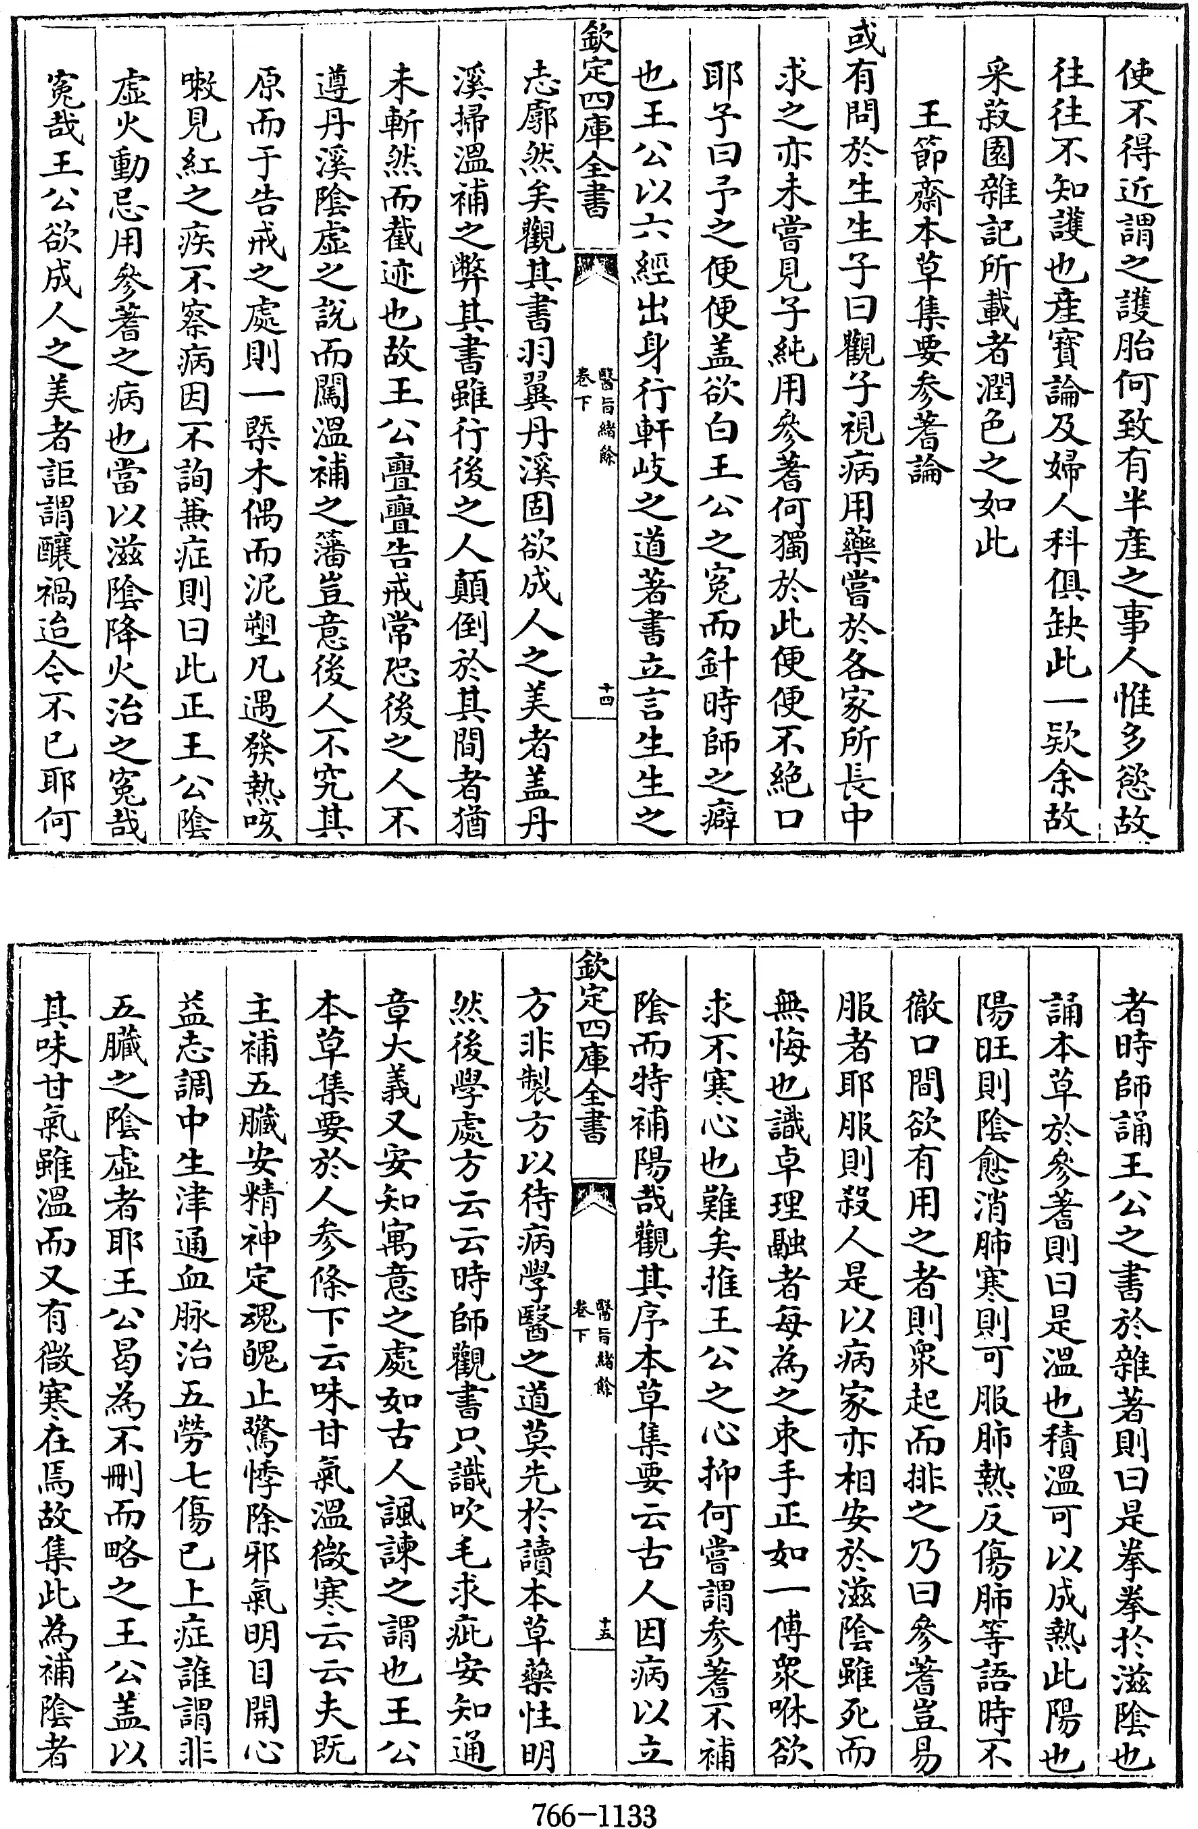 使不得近謂之護胎何致有半產之事人惟多慾故
往往不知護也産寳論及婦人科俱缺此一欵余故
采菽園雜記所載者潤色之如此
王節齋本草集要参蓍論
或有問於生生子曰觀子視病用藥嘗於各家所長中
求之亦未嘗見子純用參蓍何獨於此便便不絶口
耶予曰予之便便盖欲白王公之寃而針時師之癖
也王公以六經出身行軒岐之道著書立言生生之
欽定四庫全書
醫旨緒餘
卷下
十四
志廓然矣觀其書羽翼丹溪固欲成人之美者盖丹
溪掃溫補之弊其書雖行後之人顛倒於其間者猶
未斬然而截迹也故王公亹亹告戒常恐後之人不
遵丹溪陰虛之說而闖溫補之藩豈意後人不究其
原而于告戒之處則一槩木偶而泥塑凡遇發熱咳
嗽見紅之疾不察病因不詢兼症則曰此正王公陰
虛火動忌用參蓍之病也當以滋陰降火治之寃哉
寃哉王公欲成人之美者詎謂釀禍迨今不已耶何
者時師誦王公之書於雜著則曰是拳拳於滋陰也
誦本草於參蓍則曰是溫也積溫可以成熱此陽也
陽旺則陰愈消肺寒則可服肺熱反傷肺等語時不
徹口間欲有用之者則衆起而排之乃曰參蓍豈易
服者耶服則殺人是以病家亦相安於滋陰雖死而
無悔也識卓理融者每為之束手正如一傅衆咻欲
求不寒心也難矣推王公之心抑何嘗謂参蓍不補
陰而特補陽哉觀其序本草集要云古人因病以立
欽定四庫全書
醫旨緒餘
卷下
十五
方非製方以待病學醫之道莫先於讀本草藥性明
然後學處方云云時師觀書只識吹毛求疵安知通
章大義又安知寓意之處如古人諷諫之謂也王公
本草集要於人参條下云味甘氣溫微寒云云夫既
主補五臟安精神定魂魄止驚悸除邪氣明目開心
益志調中生津通血脉治五勞七傷已上症誰謂非
五臟之陰虛者耶王公曷為不刪而略之王公盖以
其味甘氣雖溫而又有微寒在焉故集此為補陰者
766-1133